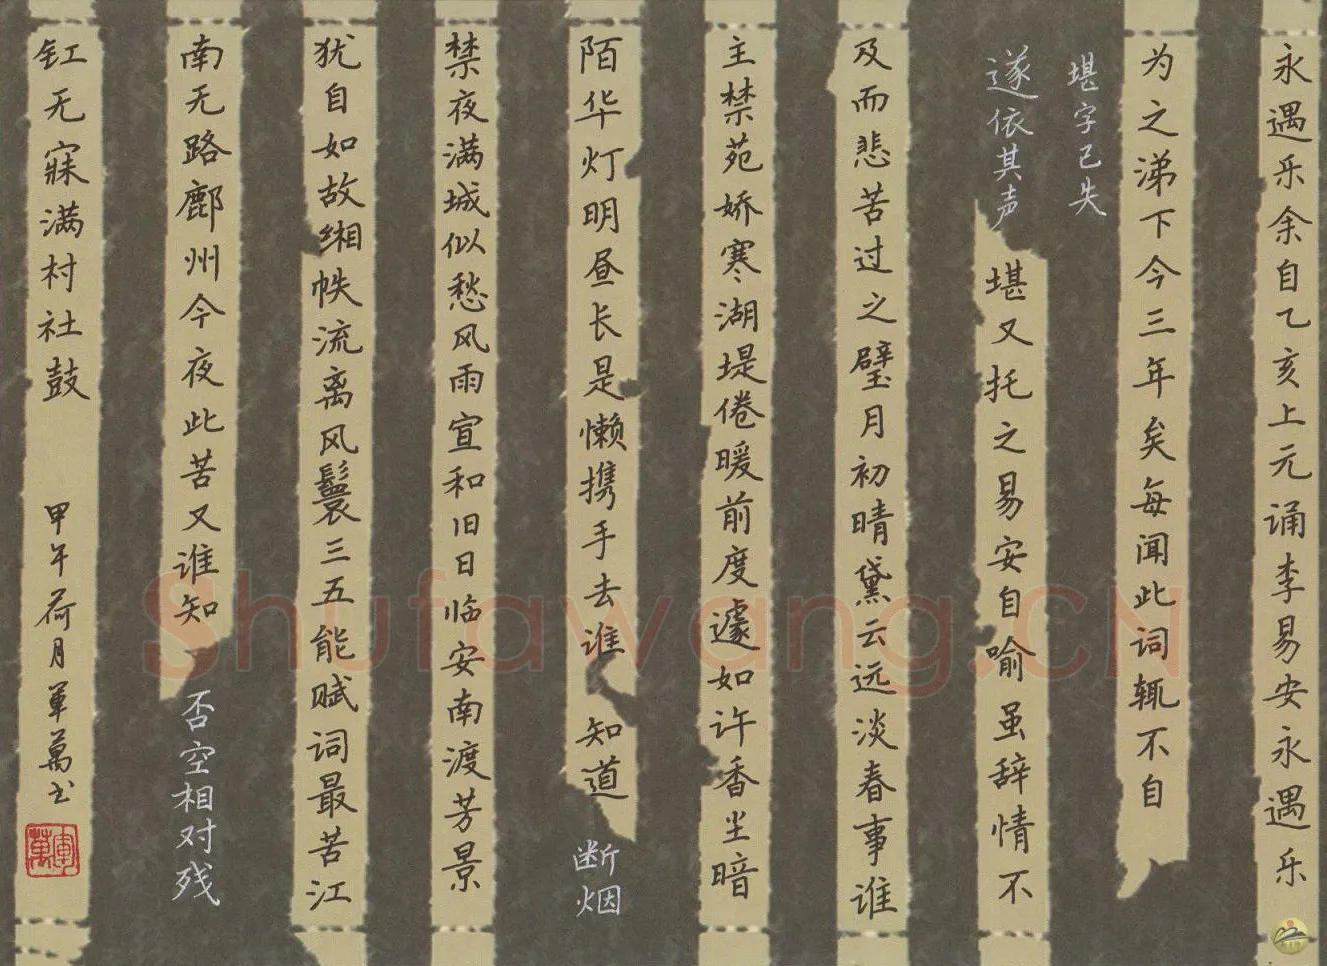 永遇乐余自乙亥上元诵李易安永遇乐
为之涕下今三年矣每闻此词辄不自
堪字已失
遂依其声
堪又托之易安自喻虽辞情不
及而悲苦过之璧月初晴黛云远淡春事谁
主禁苑娇寒湖堤倦暖前度遽如许香尘暗
陌华灯明昼长是懒携手去谁知道
断烟
禁夜满城似愁风雨宣和旧日临安南渡芳景
犹自如故缃帙流离风鬟三五能赋词最苦江
南无路鄜州今夜此苦又谁知
否空相对残
釭无寐满村社鼓
甲午荷月军万书
军万
Shufawang.CN